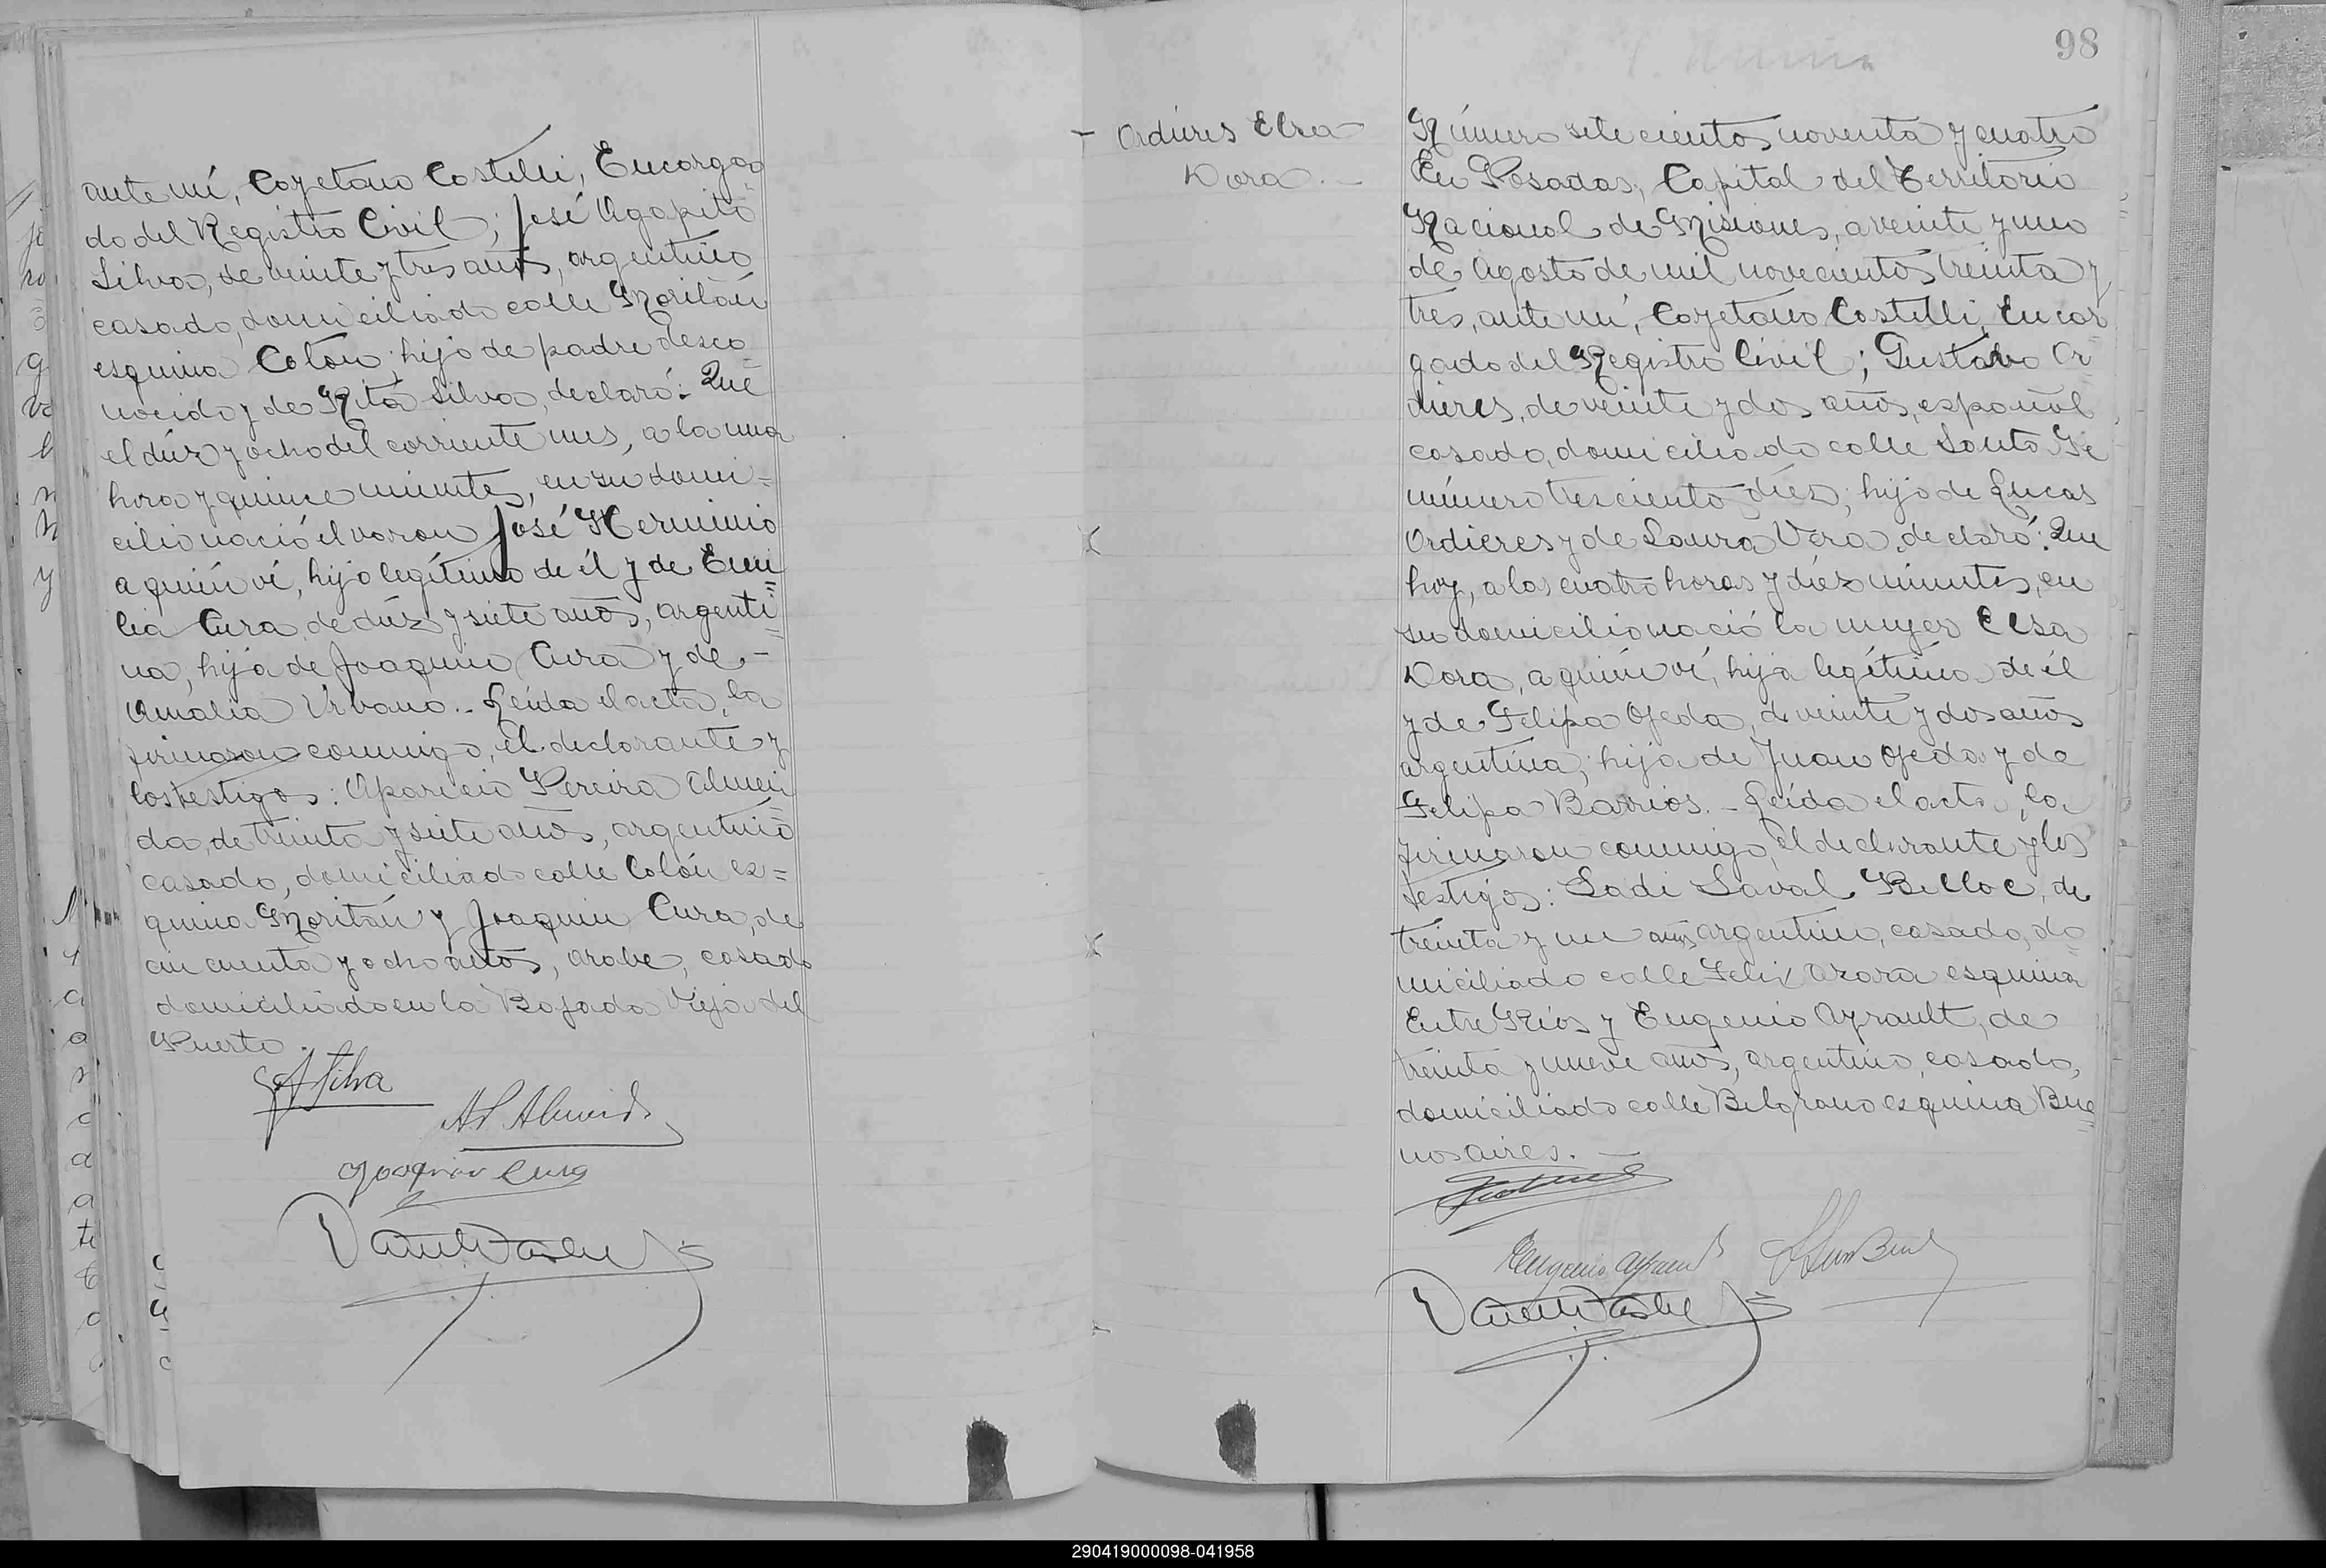 ante mí, Cayetano Castelli, Encarga
do del Registro Civil; José Agapito
Silva, de veinte y tres años, argentino
casado, domiciliado calle Moritán
esquina Colón; hijo de padre desco=
nocido y de Rita Silva, declaró: Que
el diéz y ocho del corriente mes, a la una
hora y quince minutos, en su domi=
cilio nació el varon José Herminio
a quién ví, hijo legítimo de él y de Emi=
lia Cura, de diéz y siete años, argenti=
na, hija de Joaquin Cura y de -
Amalia Urbano.- Leída el acta, la
firmaron conmigo, el declarante y
los testigos: Aparicio Pereira Almei=
da, de treinta y siete años, argentino
casado, domiciliado calle Colón es=
quina Moritán y Joaquin Cura, de
cincuenta y ocho años, arabe, casado
domiciliado en la Bajada Vieja del
Puerto.
A Silva
A P Almeida
Joaquin Cura
98
Ordieres Elsa
Dora.-
Número setecientos noventa y cuatro
En Posadas, Capital del Territorio
Nacional de Misiones, a veinte y uno
de Agosto de mil novecientos treinta y
tres, ante mí, Cayetano Castelli, Encar
gado del Registro Civil; Gustavo Or=
dieres, de veinte y dos años, español
casado, domiciliado calle Santa Fé
número trescientos diez; hijo de Lucas
Ordieres y de Laura Vera, declaró: Que
hoy, a las cuatro horas y diéz minutos, en
su domicilio nació la mujer Elsa
Dora, a quién ví, hija legítima de él
y de Felipa Ojeda, de veinte y dos años
argentina; hija de Juan Ojeda y de
Felipa Barrios.- Leída el acta, la
firmaron conmigo, el declarante y los
testigos: Sadi Laval Belloc, de
treinta y un años argentino, casado, do=
miciliado calle Felix Azara esquina
Entre Rios y Eugenio Ayrault, de
treinta y nueve años, argentino, casado,
domiciliado calle Belgrano esquina Bue=
nos aires.-
Eugenio Ayrault
290419000098-041958